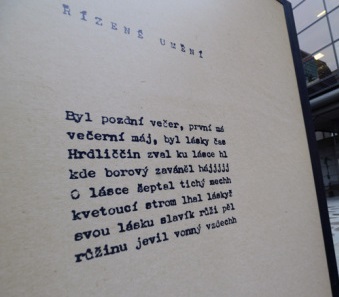 ŘÍZENÉ UMĚNÍ
Byl pozdní večer, první má
večerní máj, byl lásky čas
Hrdliččin zval ku lásce hl
kde borový zaváněl hájjjjj
O lásce šeptal tichý mechh
kvetoucí strom lhal láskyž
svou lásku slavík růži pěl
růžinu jevil vonný vzdechh